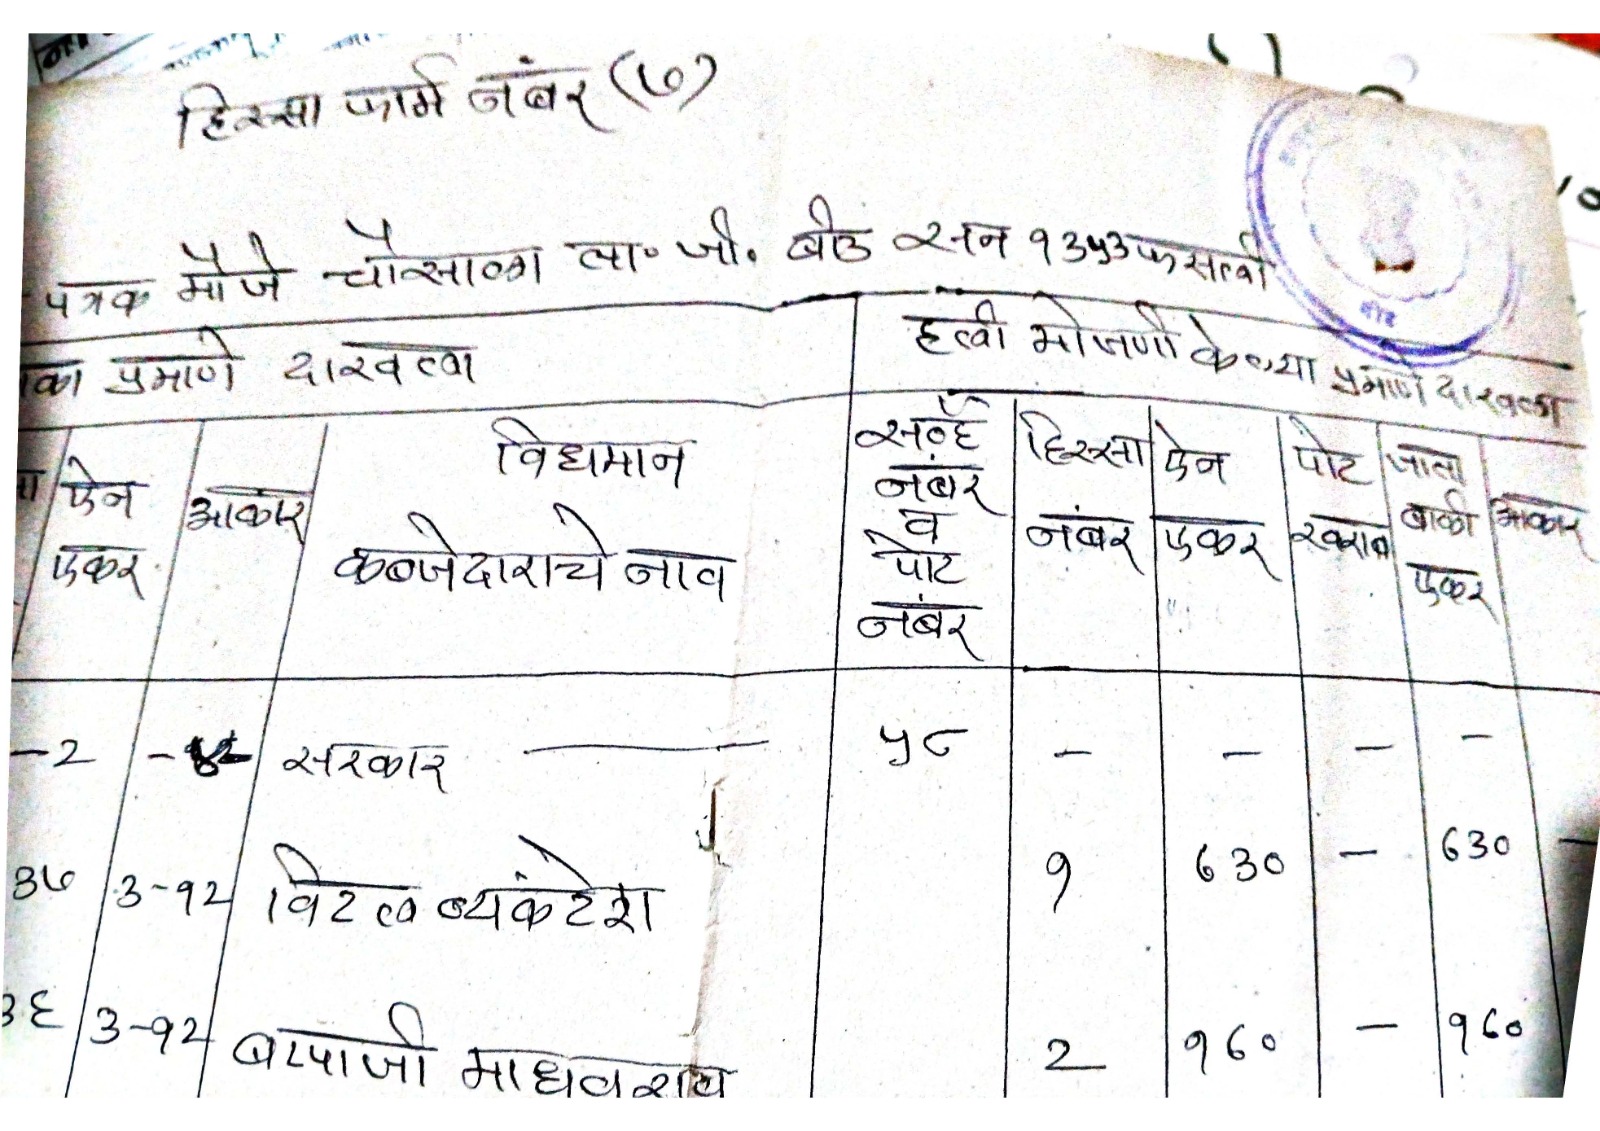 हिस्सा फार्म नंबर (७)
पत्रक मौजे चौसाळा ता० जी. बीड सन १३५३ फसली
प्रमाणे दाखला
हल्ली मोजणी केल्या प्रमाणे दाखला
ऐन एकर
आकार
विद्यमान कब्जेदाराचे नाव
सर्व्हे नंबर व पोट नंबर
हिस्सा नंबर
ऐन एकर
पोट खराब
जाता बाकी एकर
आकार
-२ सरकार ५८ - - - -
३७ ३-१२ विठल व्यंकटेश १ ६३० - ६३०
३६ ३-१२ बापाजी माधवराव २ १६० - १६०
बीड